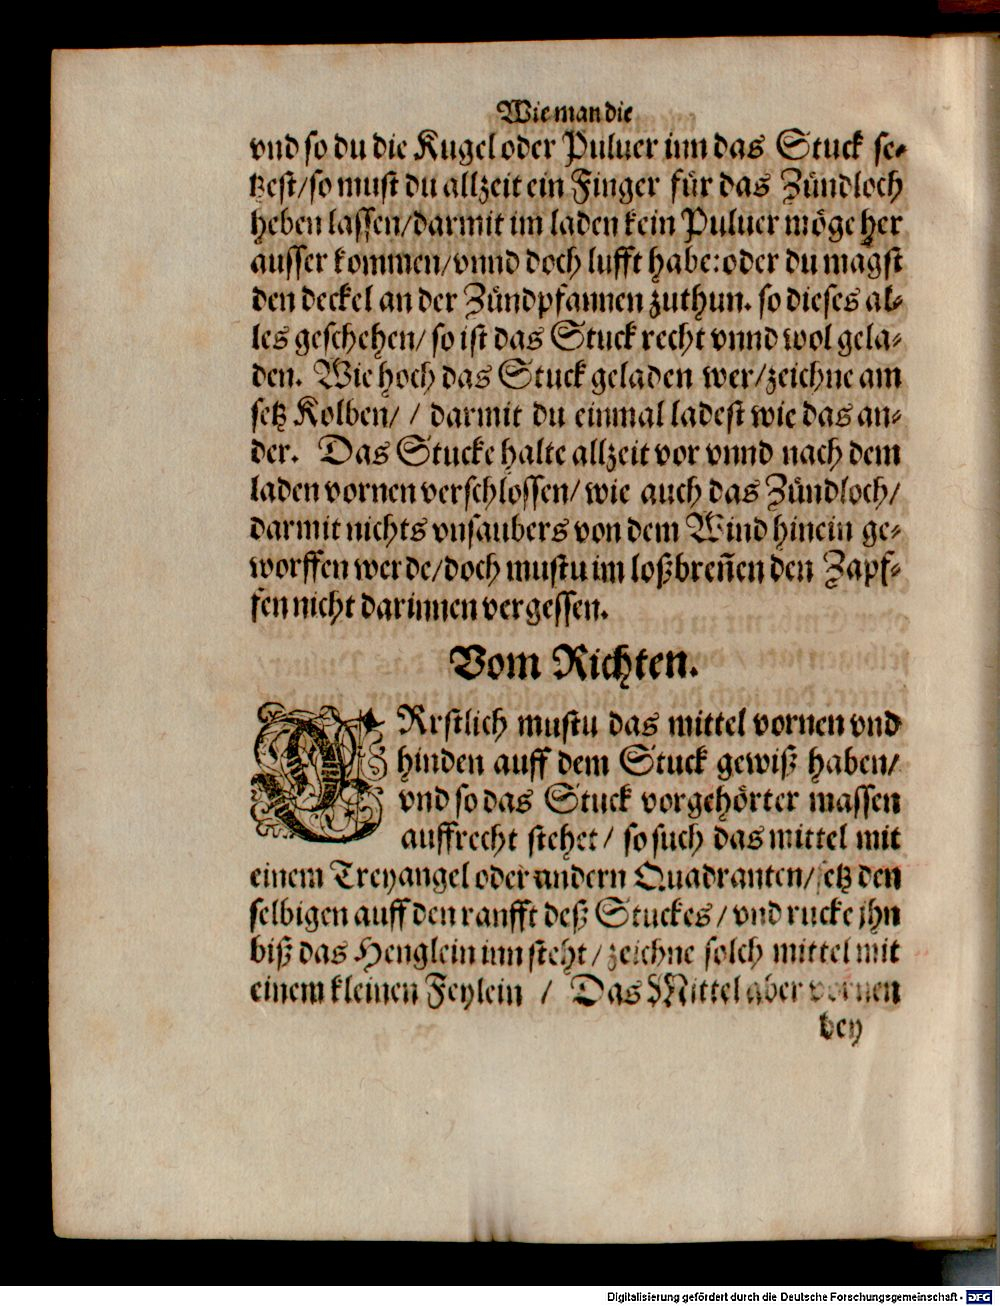 Wie man die
vnd so du die Kugel oder Puluer inn das Stuck se⸗
tzest/so must du allzeit ein Finger für das Zündloch
heben lassen/darmit im laden kein Puluer möge her
ausser kommen/vnnd doch lufft habe:oder du magst
den deckel an der Zündpfannen zuthun. so dieses al⸗
les geschehen/ so ist das Stuck recht vnnd wol gela⸗
den. Wie hoch das Stuck geladen wer/zeichne am
setz Kolben/ / darmit du einmal ladest wie das an⸗
der. Das Stucke halte allzeit vor vnnd nach dem
laden vornen verschlossen/ wie auch das Zündloch/
darmit nichts vnsaubers von dem Wind hinein ge⸗
worffen werde/doch mustu im loßbreñen den Zapf⸗
fen nicht darinnen vergessen.
Vom Richten.
ERrstlich mustu das mittel vornen vnd
hinden auff dem Stuck gewiß haben/
vnd so das Stuck vorgehörter massen
auffrecht stehet/ so such das mittel mit
einem Treyangel oder andern Quadranten/ setz den
selbigen auff den ranfft deß Stuckes/ vnd rucke jhn
biß das Henglein inn steht/ zeichne solch mittel mit
einem kleinen Feylein / Das Mittel aber vornen
bey
Digitalisierung gefördert durch die Deutsche Forschungsgemeinschaft - DFG